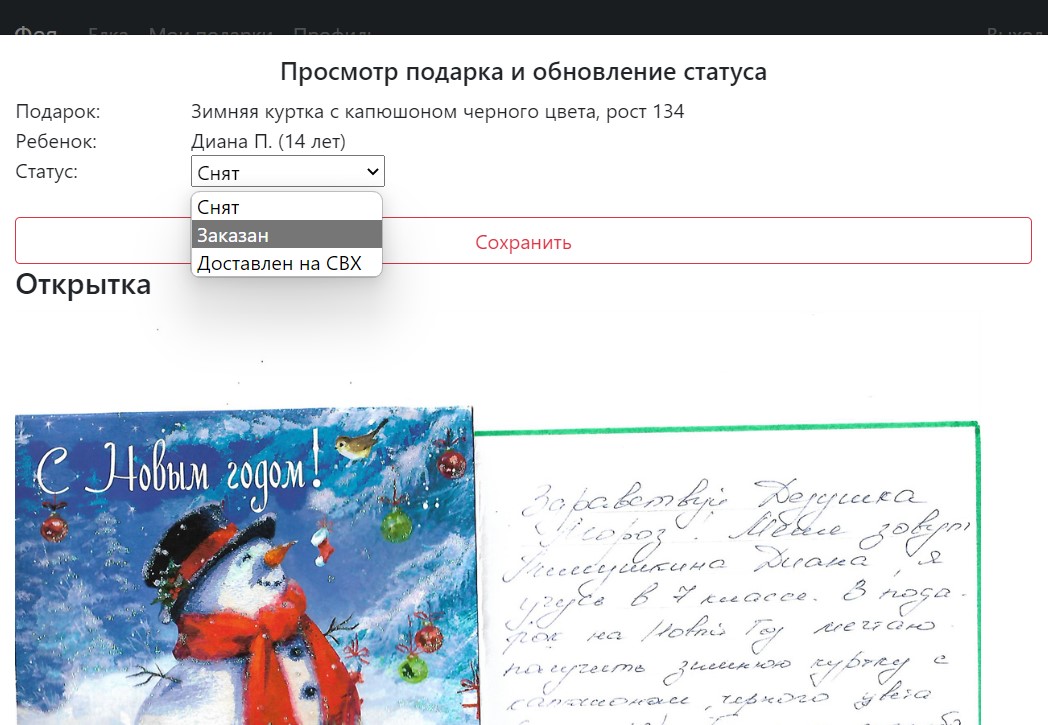 Фея Елка Мои подарки Профиль Выход
Просмотр подарка и обновление статуса
Подарок: Зимняя куртка с капюшоном черного цвета, рост 134
Ребенок: Диана П. (14 лет)
Статус: Снят
Снят
Заказан
Доставлен на СВХ
Сохранить
Открытка
С Новым годом!
Здравствуй Дедушка
Мороз! Меня зовут
Диана, я
учусь в 7 классе. В пода-
рок на Новый Год мечтаю
получить зимнюю куртку с
капюшоном, черного цвета